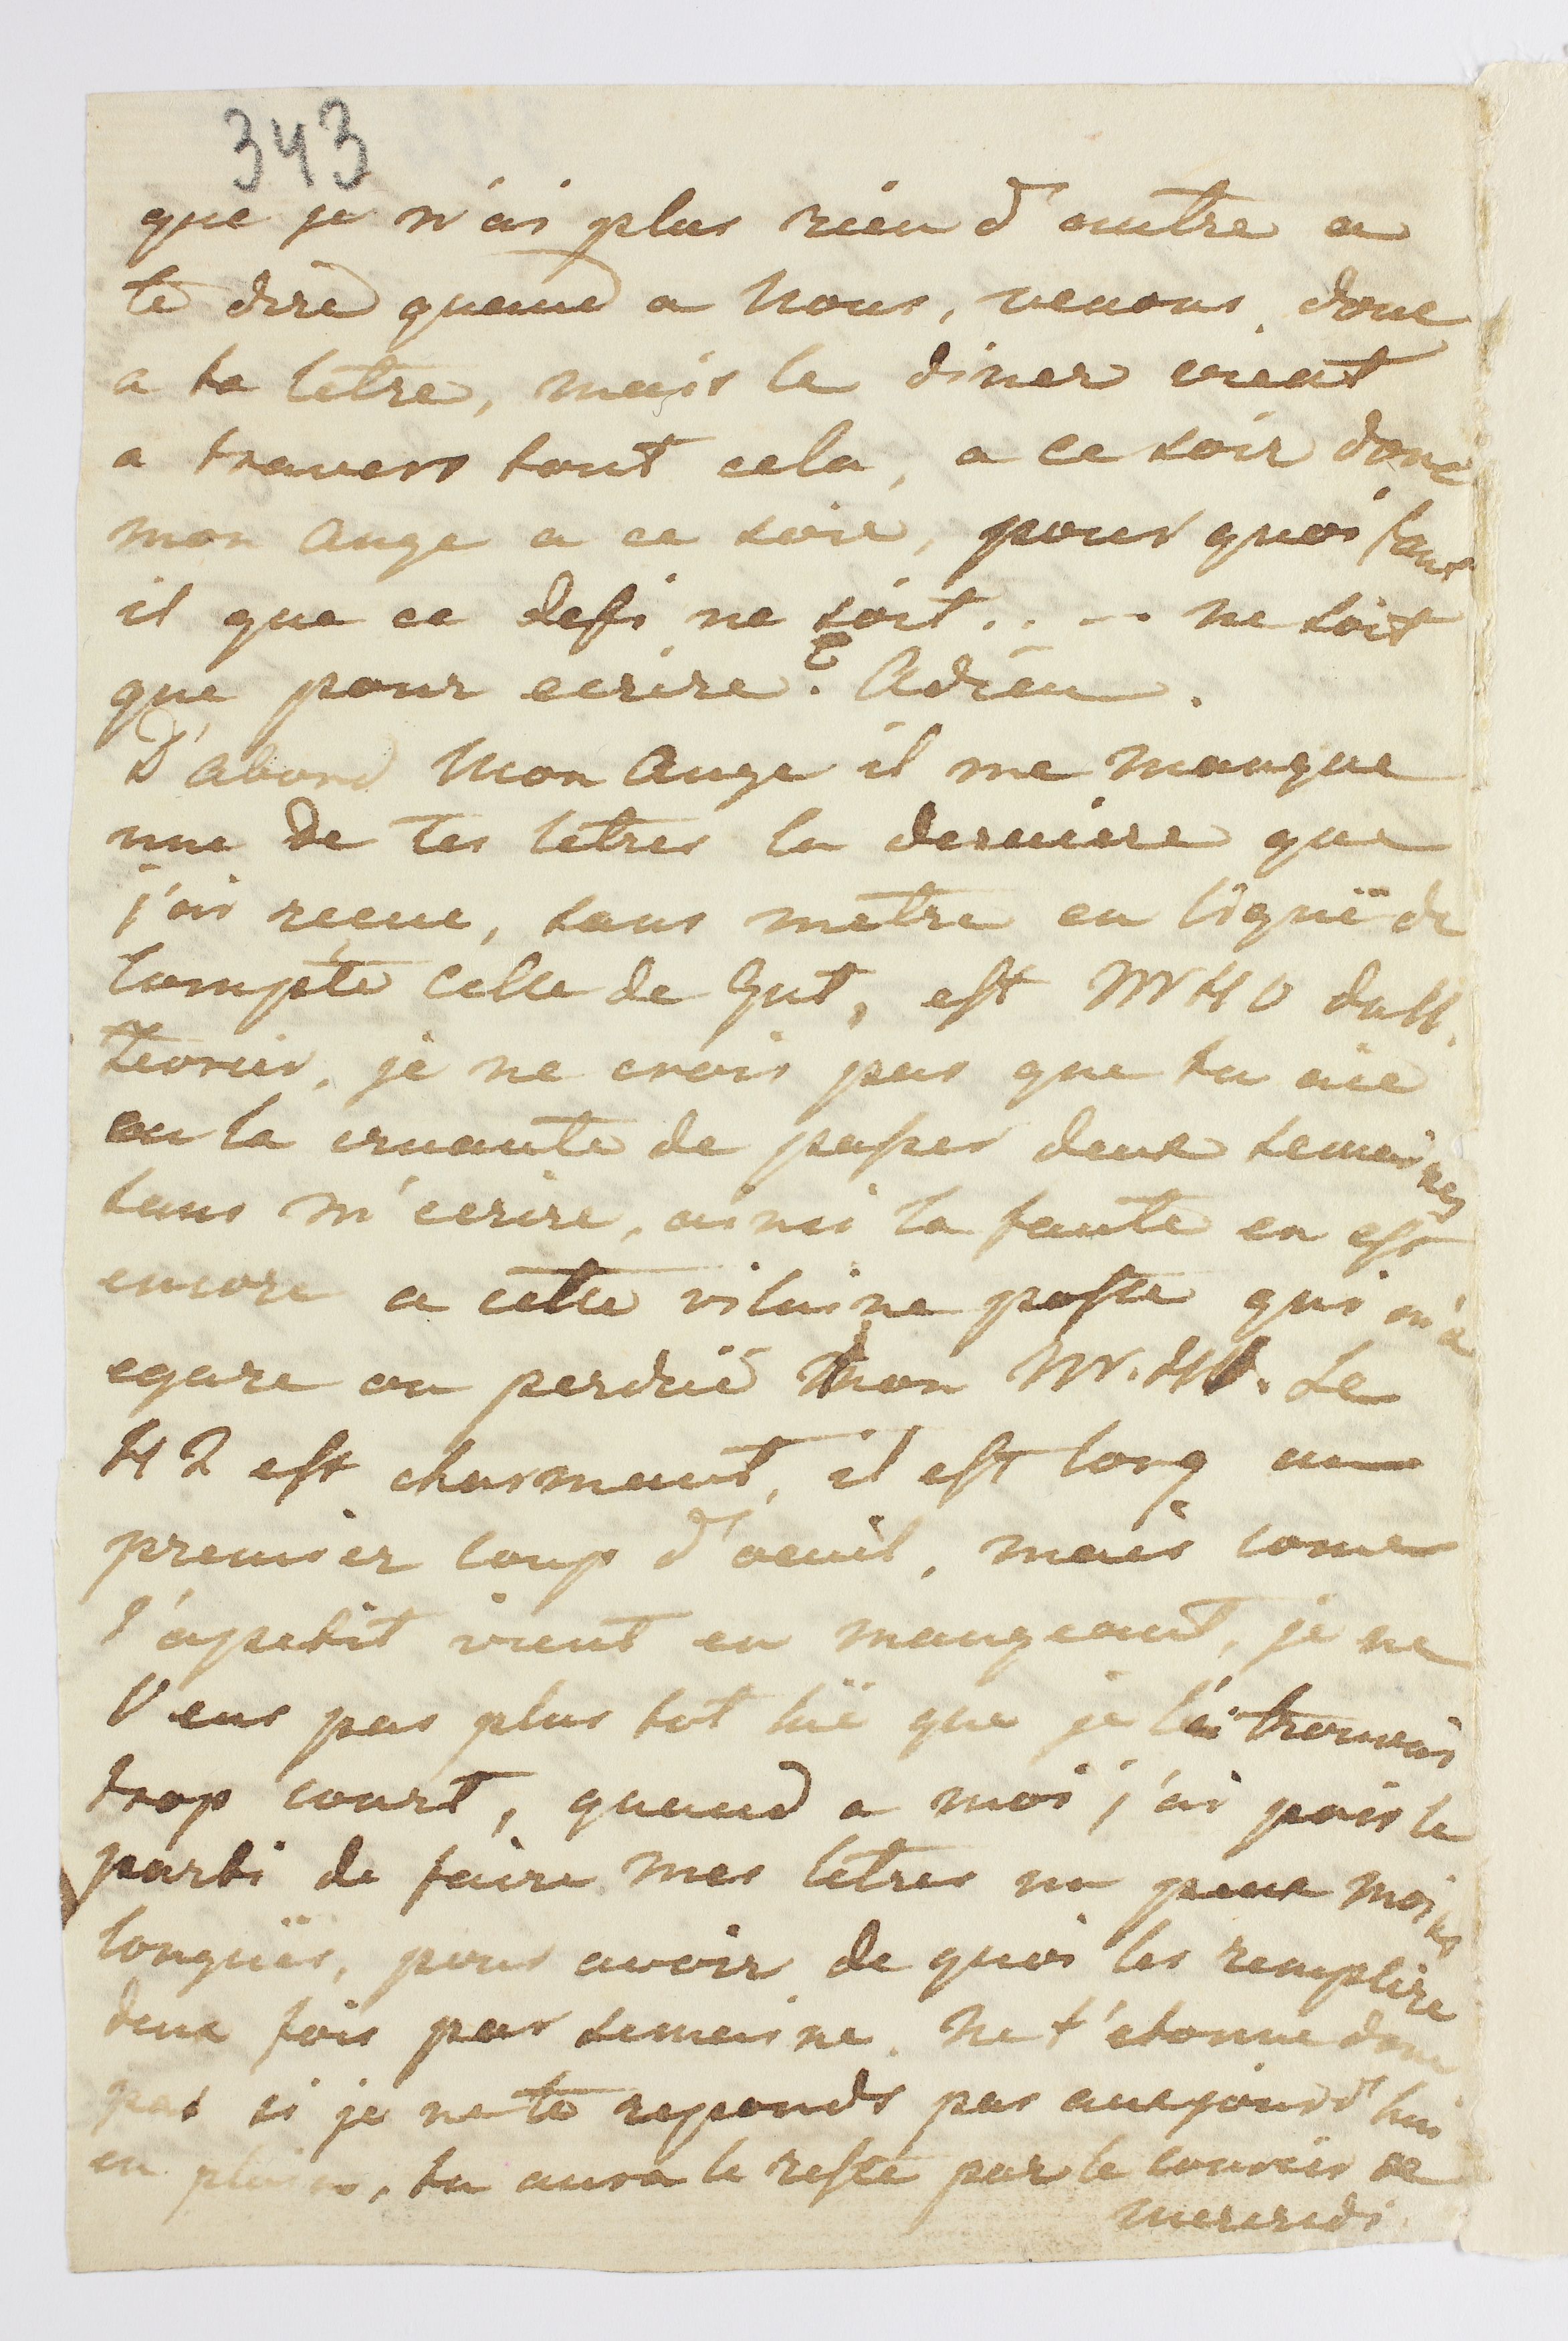 343
que je n'ai plus rien d'autre a
te dire quand a Nous, venons donc
a ta letre, mais le diner vient
a travers tout cela, a ce soir donc
mon Ange a ce soir, pour quoi faut
il que ce defi ne soit .. -- ne soit
que pour ecrire ? Adieu.
D'abord Mon Ange il me manque
une De Tes letres la derniere que
j'ai reçue, sans metre en ligne de
Compte Celle de est Nr 40
je ne crois pas que tu aie
eu la cruaute de passer deux semaines
sans m'ecrire, ainsi la faute en est
encore a cette vilaine poste qui m'a
egare ou perdue Mon Nr. 40. Le
42 est charmant, il est long au
premier coup d'oeuil, mais come
l'apetit vient en mangeant, je ne
l'eus pas plus tot luë que je l'ai trouvais
trop court, quand a moi j'ai pris le
parti de faire mes letres un peux moins
longuës, pour avoir de quoi les remplire
deux fois par semaine. Ne t'etonne donc
pas si je ne te reponds pas aujourd'hui
en plain, tu aura le reste par le courier de
mercredi.